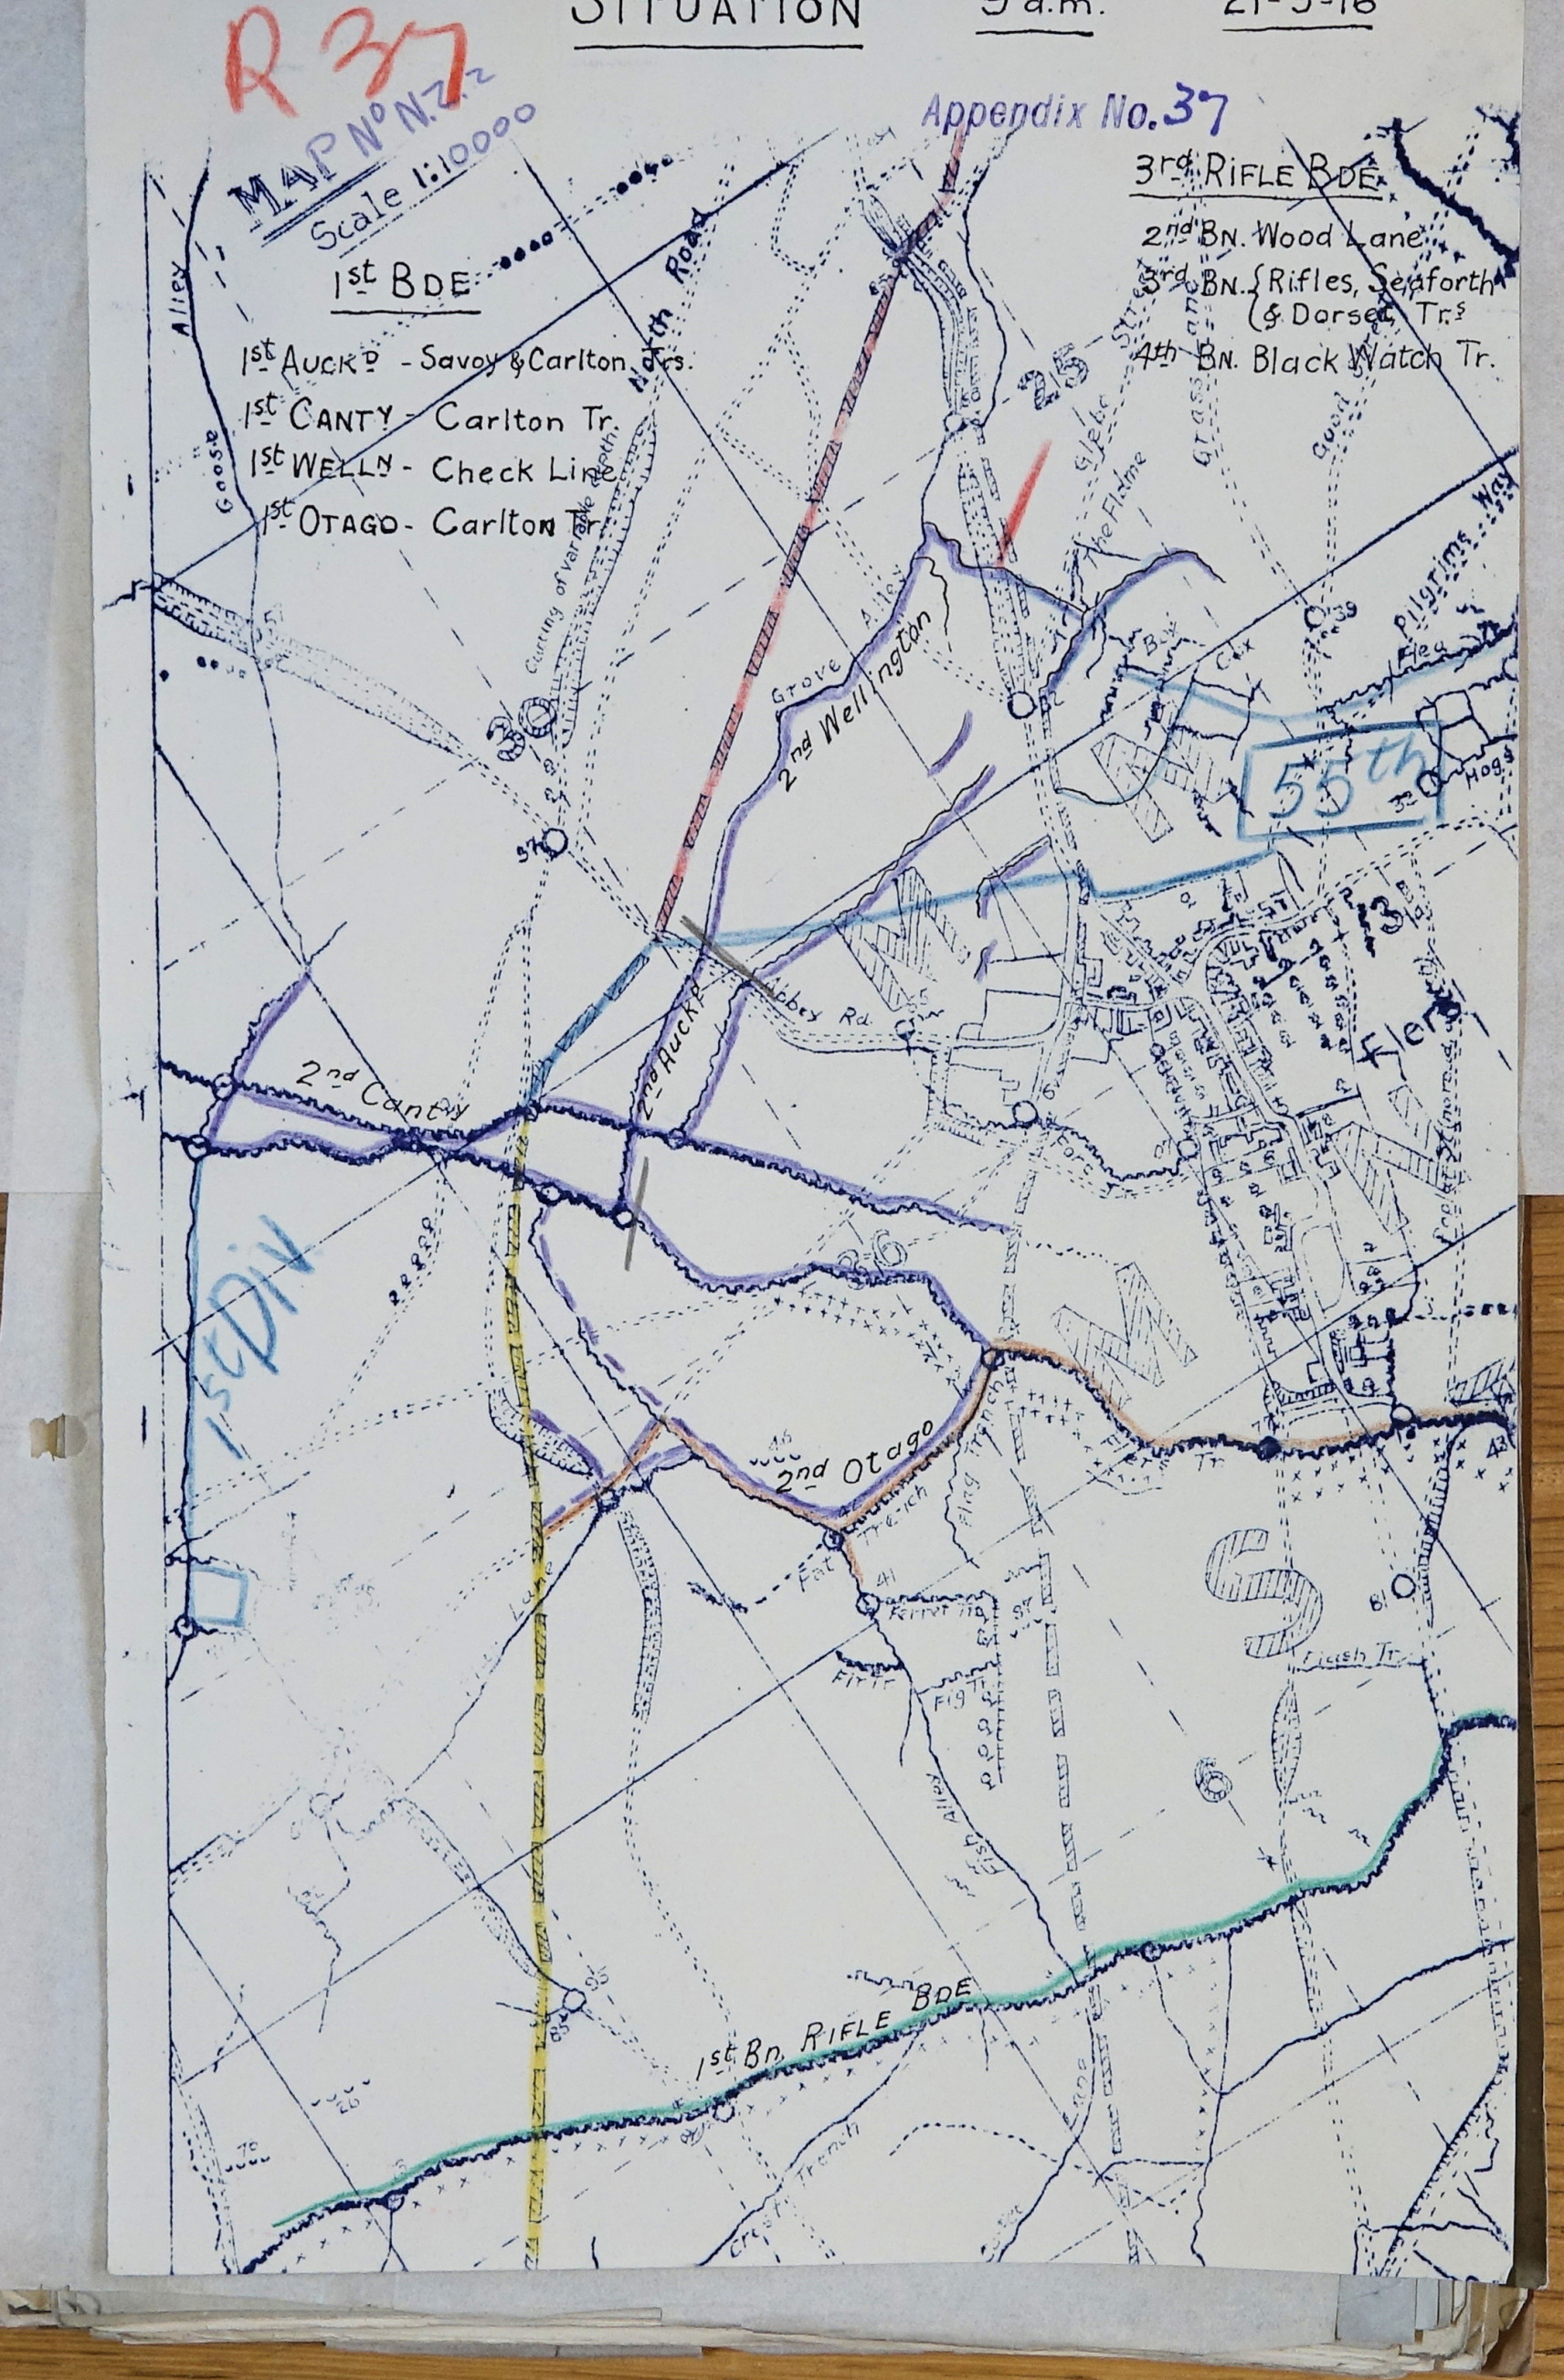 SITUATION 9 a.m. 21-9-16
R 37
MAP Nº N.Z.2
Scale 1:10000
Appendix No. 37
1st BDE
1st AUCKD - Savoy & Carlton Trs.
1st CANTY - Carlton Tr.
1st WELLN - Check Line
1st OTAGO - Carlton Tr.
3rd RIFLE BDE
2nd BN. Wood Lane
3rd BN. {Rifles, Seaforth
& Dorset Trs
4th BN. Black Watch Tr.
Goose Alley
North Road
Cutting of variable depth
25
Glebe
The Flame
Grass Lane
Good
Pilgrims Way
Flea
Hogs
Box
Cox
39
Grove Alley
2nd Wellington
30
55th
M
31
Abbey Rd.
2nd Auckd
2nd Canty
Flers
Fort
36
M
1st Div
2nd Otago
Flag Trench
Fat Trench
Tr
43
41
Ferret Tr
Fir Tr
Fig Tr
Flush Tr.
81
S
6
Fish Alley
1st Bn. RIFLE BDE
Crest Trench
Lane